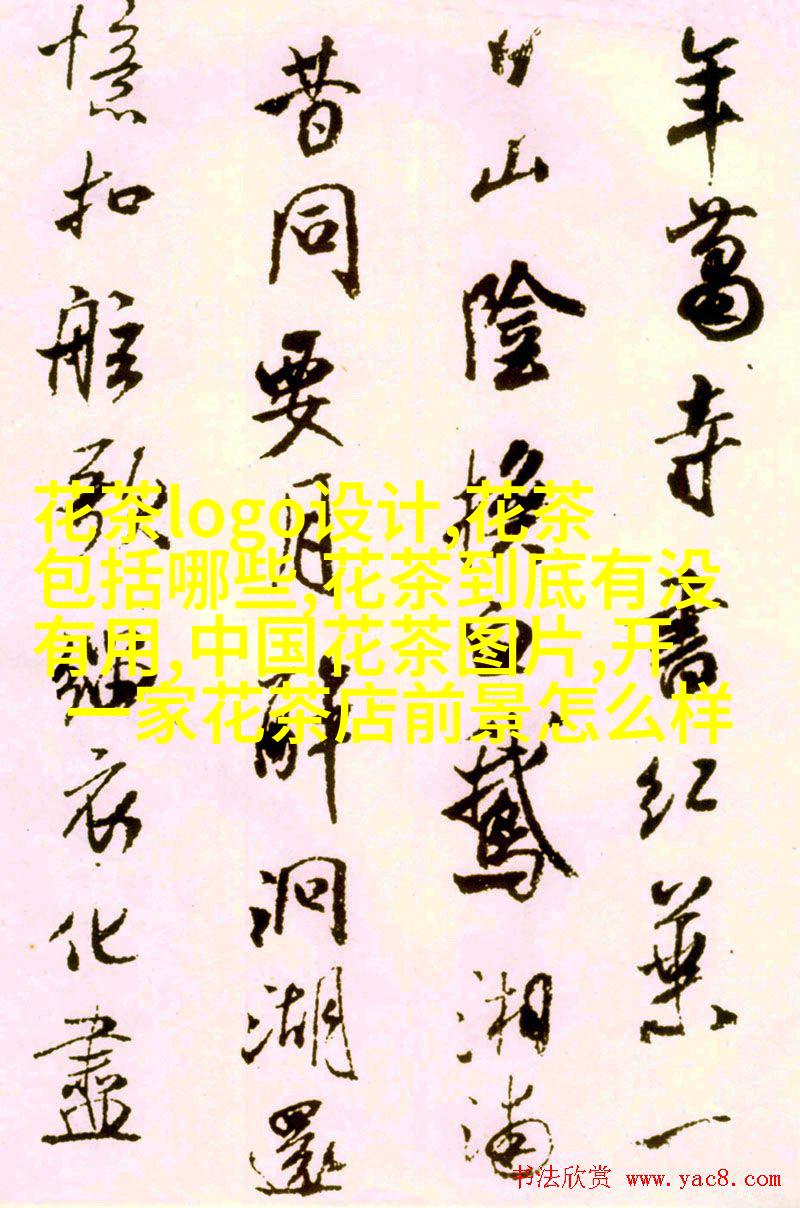 年蕭寺書紅葉一
日山陰換白鵝湘浦
昔同要月醉洞湖還
憶扣舷歌緇衣化盡
花茶logo设计,花茶
包括哪些,花茶到底有没
有用,中国花茶图片,开
一家花茶店前景怎么样
书法欣赏 www.yac8.com